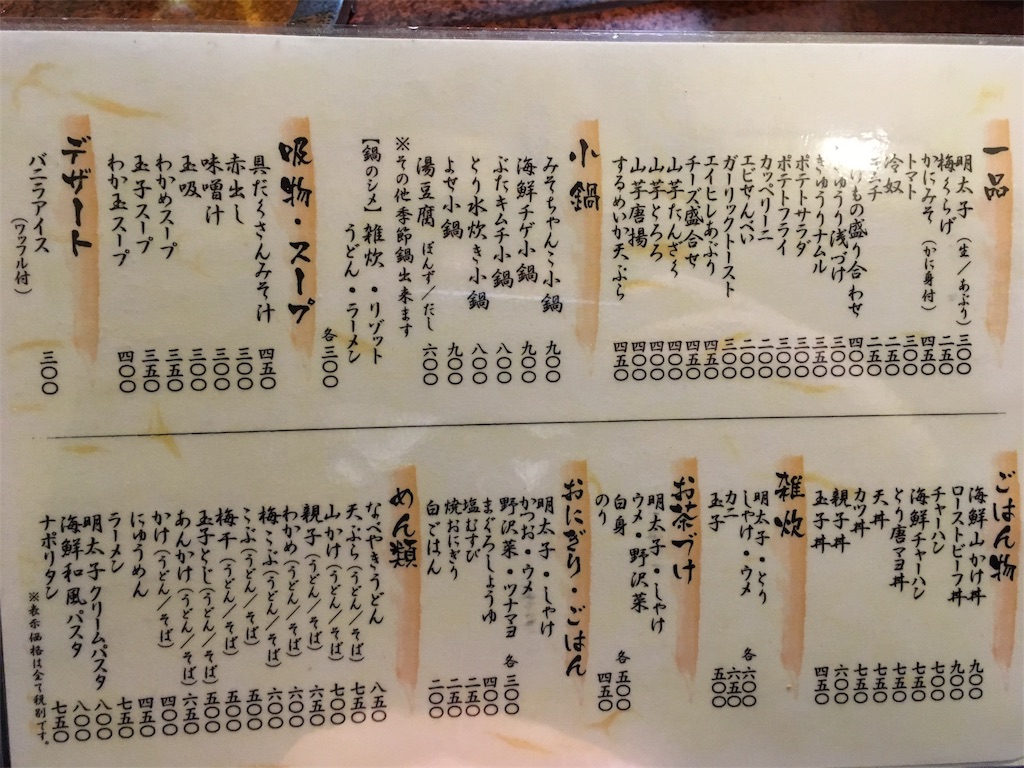 一品
明太子（生／あぶり） 三〇〇
梅くらげ 二五〇
かにみそ（かに身付） 四五〇
トマト 三〇〇
冷奴 二五〇
キムチ 二五〇
つけもの盛り合わせ 四〇〇
きゅうり浅づけ 三〇〇
きゅうりナムル 三五〇
ポテトサラダ 三〇〇
ポテトフライ 三〇〇
カッペリーニ 二〇〇
エビせんべい 二〇〇
ガーリックトースト 三〇〇
エイヒレあぶり 四五〇
チーズ盛合せ 四五〇
山芋たんざく 四〇〇
山芋とろろ 四〇〇
山芋唐揚 四〇〇
するめいか天ぷら 四五〇
小鍋
みそちゃんこ小鍋 九〇〇
海鮮チゲ小鍋 九〇〇
ぶたキムチ小鍋 八〇〇
とり水炊き小鍋 八〇〇
よせ小鍋 九〇〇
湯豆腐 ぽんず／だし 六〇〇
※その他季節鍋出来ます
【鍋のシメ】 雑炊・リゾット
うどん・ラーメン 各三〇〇
吸物・スープ
具だくさんみそ汁 四五〇
赤出し 三〇〇
味噌汁 三〇〇
玉吸 三五〇
わかめスープ 三五〇
玉子スープ 三五〇
わか玉スープ 四〇〇
デザート
バニラアイス（ワッフル付） 三〇〇
ごはん物
海鮮山かけ丼 九〇〇
ローストビーフ丼 九〇〇
チャーハン 七〇〇
海鮮チャーハン 七五〇
とり唐マヨ丼 七五〇
天丼 七五〇
カツ丼 七五〇
親子丼 六〇〇
玉子丼 四五〇
雑炊
明太子・とり
しゃけ・ウメ 各六〇〇
カニ 六五〇
玉子 五〇〇
お茶づけ
明太子・しゃけ
ウメ・野沢菜
白身 各五〇〇
のり 四五〇
おにぎり・ごはん
明太子・しゃけ
かつお・ウメ
野沢菜・ツナマヨ 各三〇〇
まぐろしょうゆ 四〇〇
塩むすび 二五〇
焼おにぎり 二五〇
白ごはん 二〇〇
めん類
なべやきうどん 八五〇
天ぷら（うどん／そば） 七五〇
山かけ（うどん／そば） 七〇〇
親子（うどん／そば） 六五〇
わかめ（うどん／そば） 六〇〇
梅こぶ（うどん／そば） 六〇〇
こぶ（うどん／そば） 五〇〇
梅干（うどん／そば） 五〇〇
玉子とじ（うどん／そば） 五五〇
あんかけ（うどん／そば） 六五〇
かけ（うどん／そば） 四〇〇
にゅうめん 四五〇
ラーメン 七五〇
明太子クリームパスタ 八〇〇
海鮮和風パスタ 八〇〇
ナポリタン 七五〇
※表示価格は全て税別です。